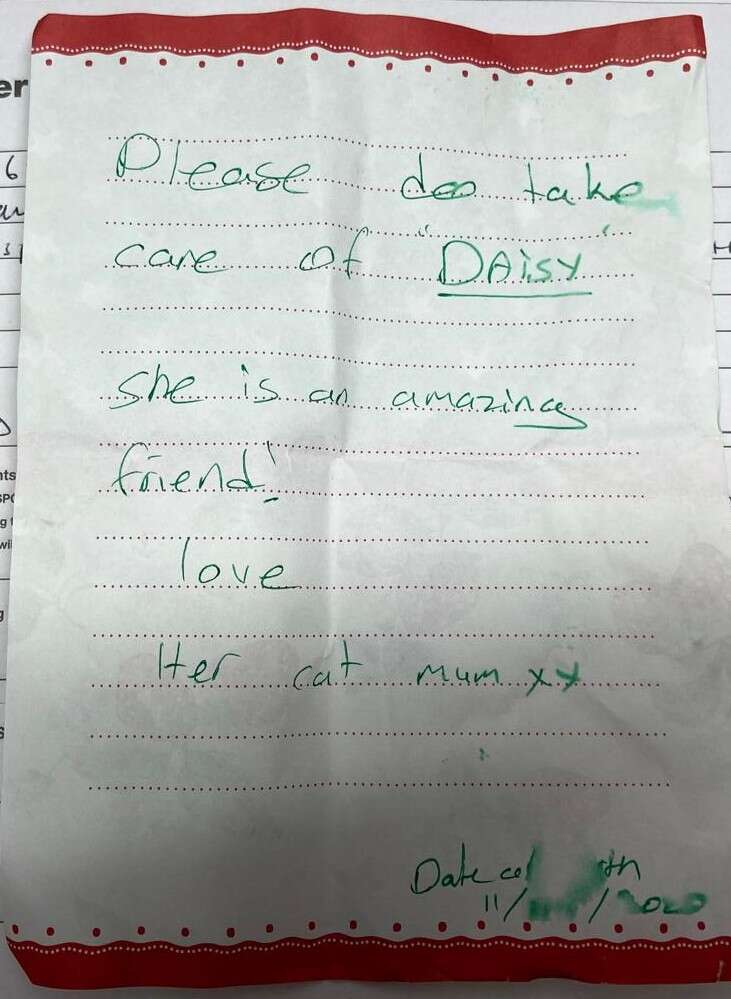 Please do take
care of "DAisy"
she is an amazing
friend!
love
Her cat mum xx
Date
11/ /2020